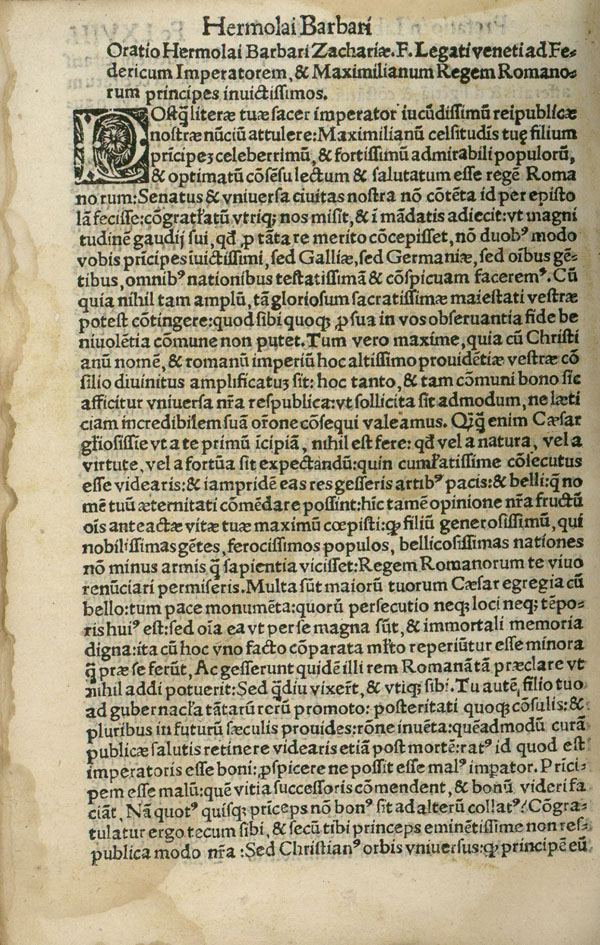 Hermolai Barbari
Oratio Hermolai Barbari Zachariæ. F. Legati veneti ad Fe-
dericum Imperatorem, & Maximilianum Regem Romano-
rum principes inuictissimos.
POstq̃ literæ tuæ sacer imperator iucũdissimũ reipublicæ
nostræ nũciũ attulere: Maximilianũ celsitudīs tuę filium
prīcipeȝ celeberrimũ, & fortissimũ admirabili populorũ,
& optimatũ cõsẽsu lectum & salutatum esse regẽ Roma
norum: Senatus & vniuersa ciuitas nostra nõ cõtẽta id per episto
lã fecisse: cõgratl̃atũ vtriq; nos misit, & ĩ mãdatis adiecit: vt magni
tudinẽ gaudij sui, qđ ꝓ tãta re merito cœpisset, nõ duobꝰ modo
vobis prīcipes ĩuictissimi, sed Galliæ, sed Germaniæ, sed oĩbus gẽ-
tibus, omnibꝰ nationibus testatissimã & cõspicuam faceremꝰ. Cũ
quia nihil tam amplũ, tã gloriosum sacratissimæ maiestati vestræ
potest cõtingere: quod sibi quoq; ꝓ sua in vos obseruantia fide be
niuolẽtia cõmune non putet. Tum vero maxime, quia cũ Christi
anũ nomẽ, & romanũ imperiũ hoc altissimo prouidẽtiæ vestræ cõ
silio diuinitus amplificatuȝ sit: hoc tanto, & tam cõmuni bono sic
afficitur vniuersa nr̃a respublica: vt sollicita sit admodum, ne læti
ciam incredibilem suã or̃one cõsequi valeamus. Qȝq̃ enim Cæsar
gl̃iosissie vt a te primũ ĩcipiã, nihil est fere: qđ vel a natura, vel a
virtute, vel a fortũa sit expectandũ: quin cuml̃atissime cõsecutus
esse videaris: & iampridẽ eas res gesseris artibꝰ pacis: & belli: q̃ no
mẽ tuũ æternitati cõmẽdare possint: hic tamẽ opinione nr̃a fructũ
oĩs anteactæ vitæ tuæ maximũ cœpisti: ꝙ filiũ generosissimũ, qui
nobilissimas gẽtes, ferocissimos populos, bellicosissimas nationes
nõ minus armis q̃ sapientia vicisset: Regem Romanorum te viuo
renũciari permiseris. Multa sũt maiorũ tuorum Cæsar egregia cũ
bello: tum pace monumẽta: quorũ persecutio neq; loci neq; tẽpo-
ris huiꝰ est: sed oĩa ea vt per se magna sũt, & immortali memoria
digna: ita cũ hoc vno facto cõparata ml̃to reperiũtur esse minora
q̃ præ se ferũt, Ac gesserunt quidẽ illi rem Romanã tã præclare vt
nihil addi potuerit: Sed q̃diu vixer̃t, & vtiq; sibi. Tu autẽ, filio tuo
ad gubernacl̃a tãtarũ rerũ promoto: posteritati quoq; cõsulis: &
pluribus in futurũ sæculis prouides: rõne inuẽta: quẽadmodũ curã
publicæ salutis retinere videaris etiã post mortẽ: ratꝰ id quod est
imperatoris esse boni: ꝓspicere ne possit esse malꝰ impator. Prīci-
pem esse malũ: quẽ vitia successoris cõmendent, & bonũ videri fa
ciãt, Nã quotꝰ quisq; prīceps nõ bonꝰ sit ad alterũ collatꝰ? Cõgra-
tulatur ergo tecum sibi, & secũ tibi princeps eminẽtissime non res-
publica modo nr̃a: Sed Christianꝰ orbis vniuersus: ꝙ principẽ eũ